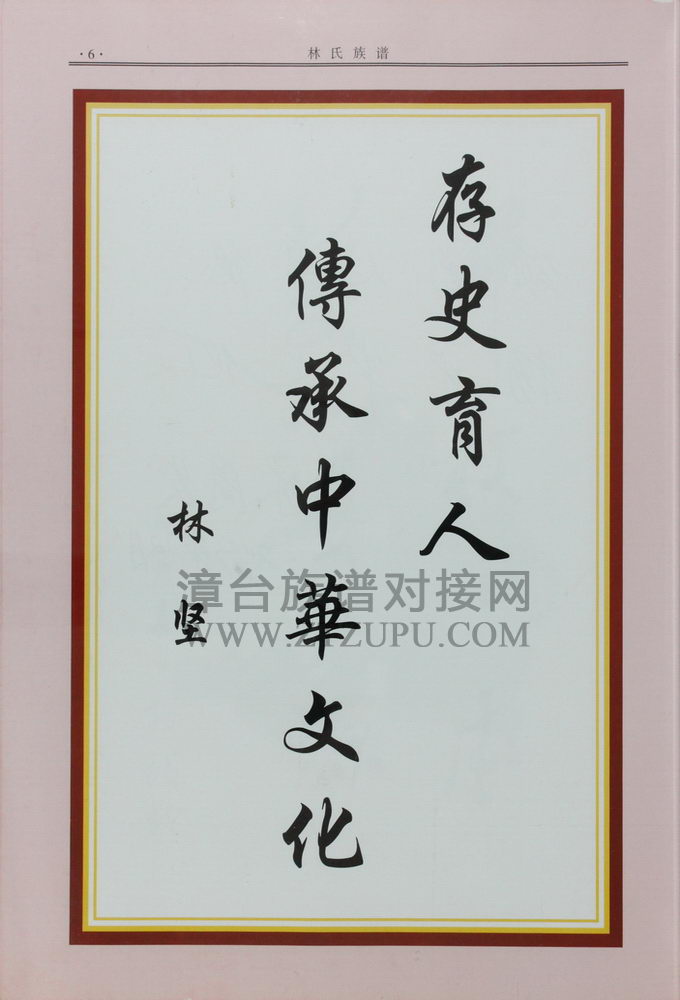 ·6·
林氏族谱
存史育人
傳承中華文化
林坚
漳台族谱对接网
WWW.ZTZUPU.COM